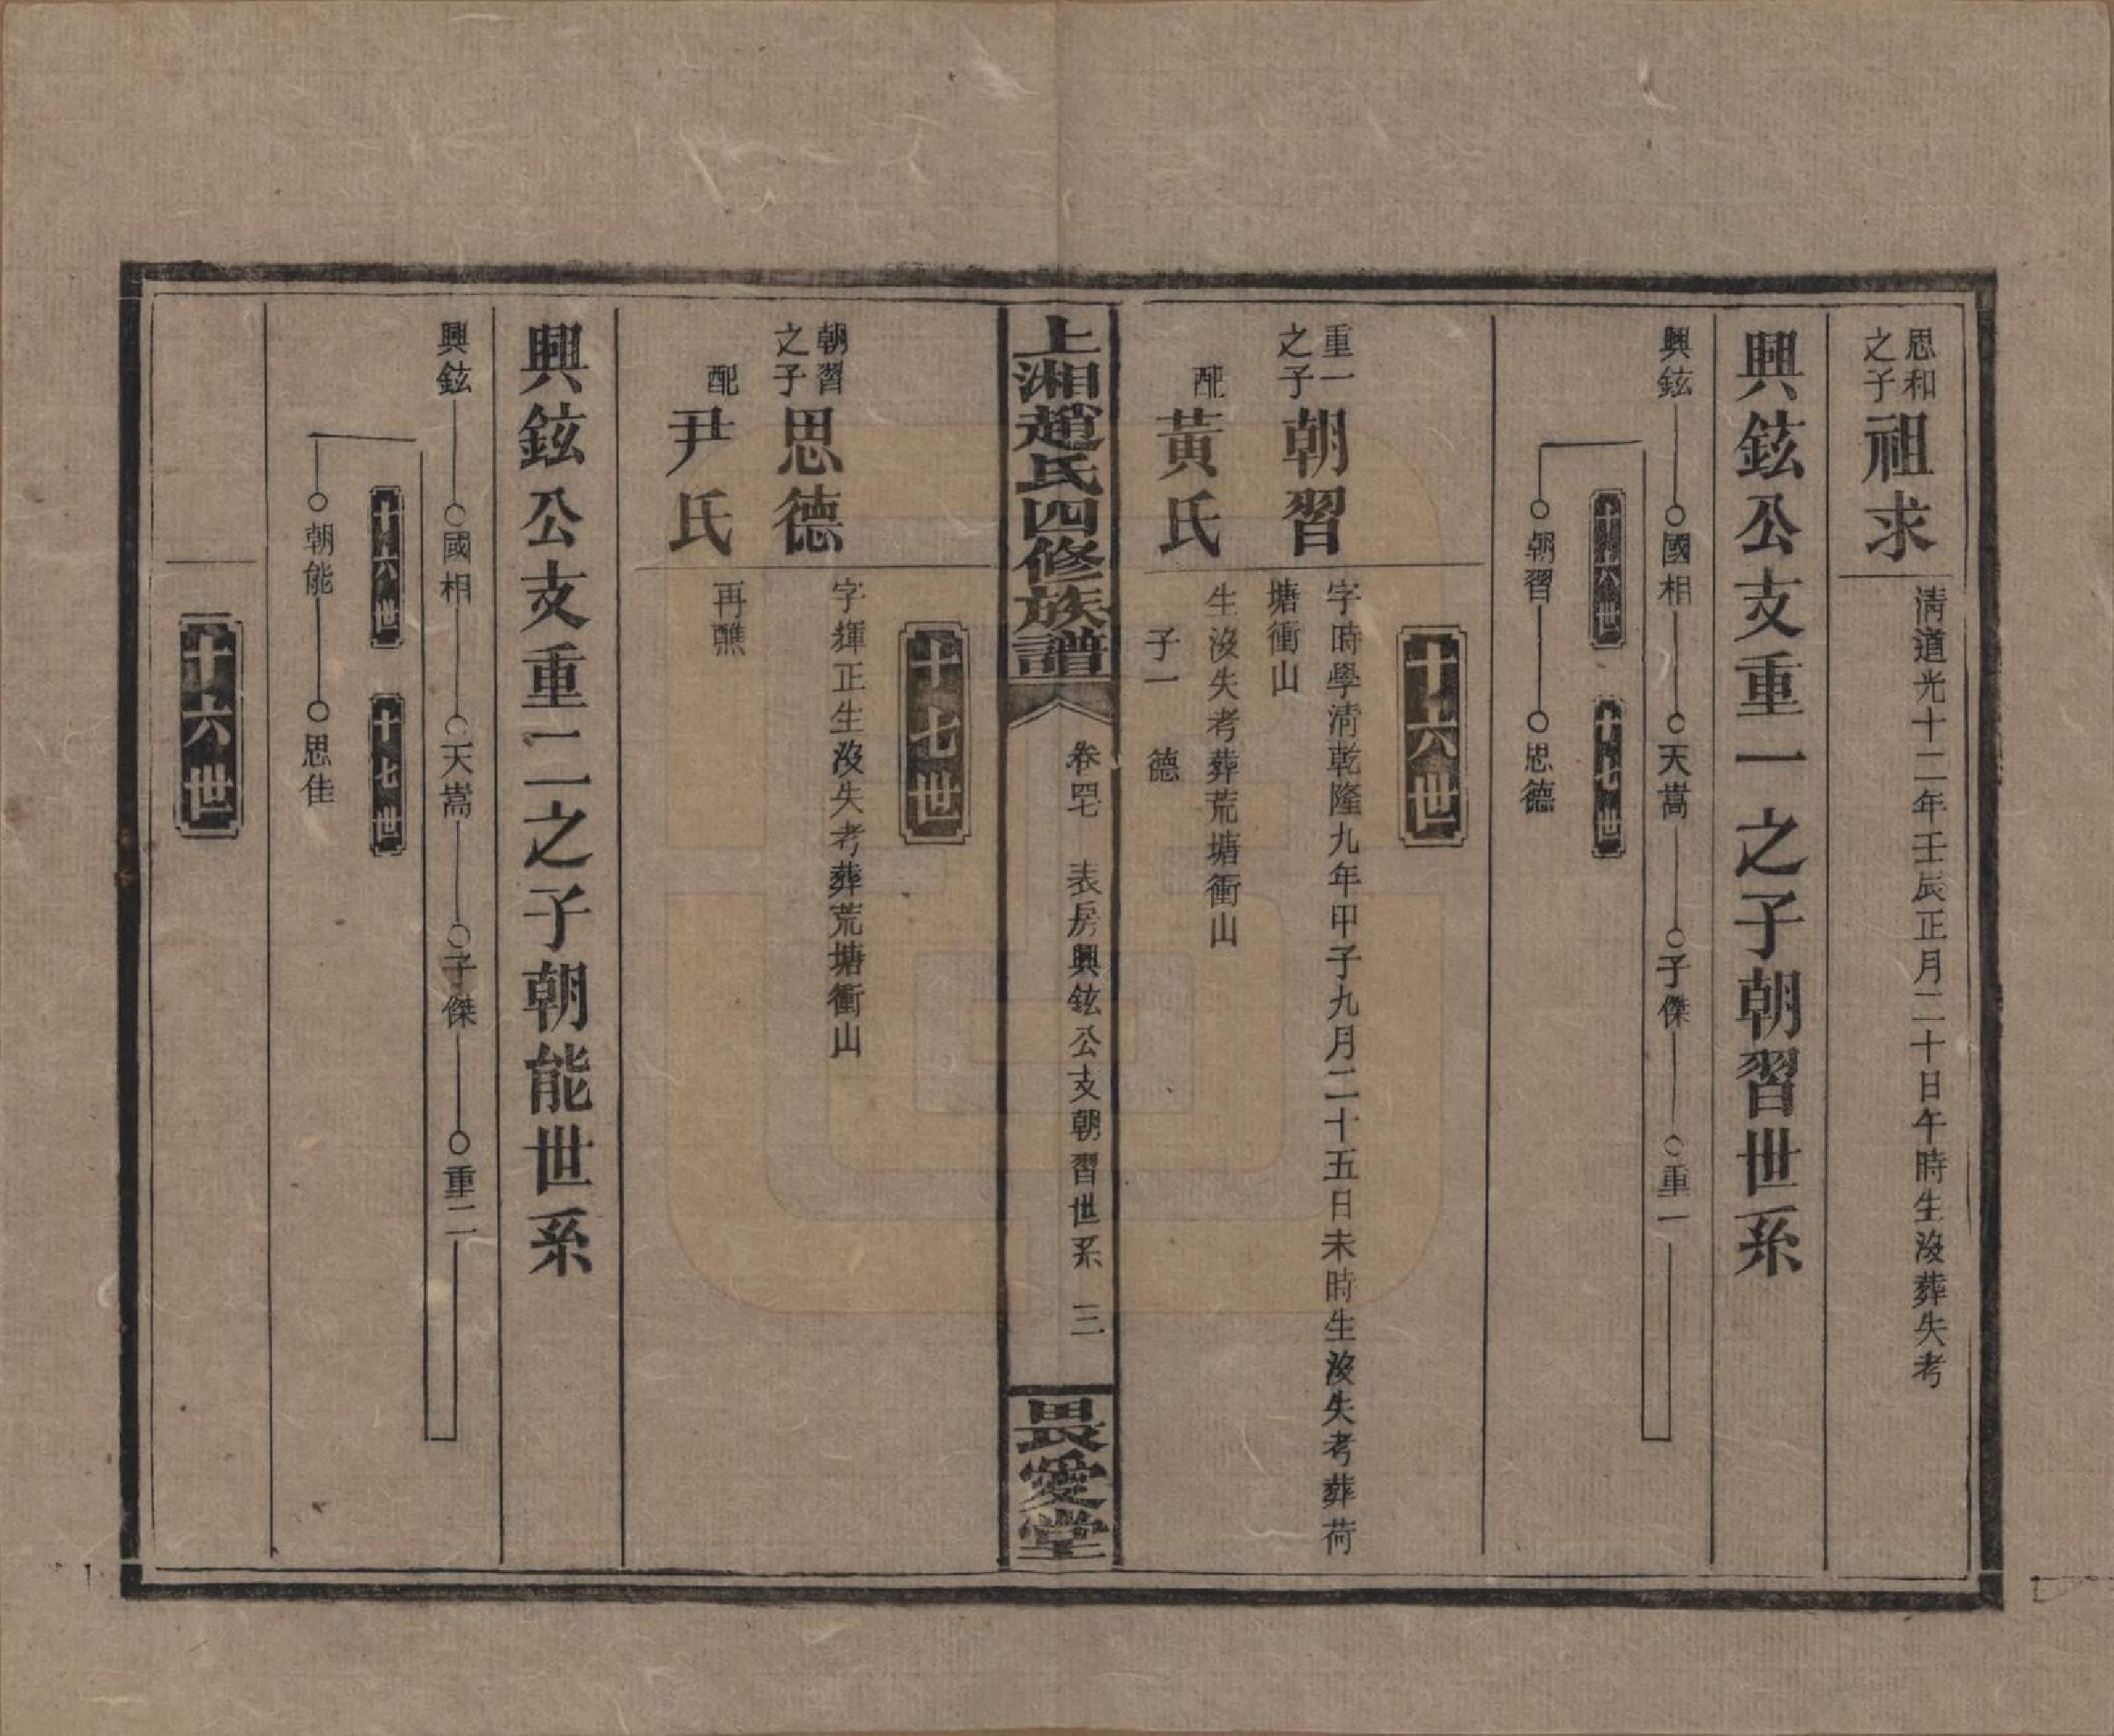 思和之子
祖求
清道光十二年壬辰正月二十日午時生沒葬失考
興鉉公支重一之子朝習世系
興鉉 國相 天嵩 子傑 重一
十六世 十七世
朝習 思德
十六世
重一之子
朝習
字時學清乾隆九年甲子九月二十五日未時生沒失考葬荷
塘衝山
配
黃氏
生沒失考葬荒塘衝山
子一 德
上湘趙氏四修族譜
卷四七 表房興鉉公支朝習世系 三
畏愛堂
十七世
朝習之子
思德
字輝正生沒失考葬荒塘衝山
配
尹氏
再醮
興鉉公支重二之子朝能世系
興鉉 國相 天嵩 子傑 重二
十六世 十七世
朝能 思佳
十六世